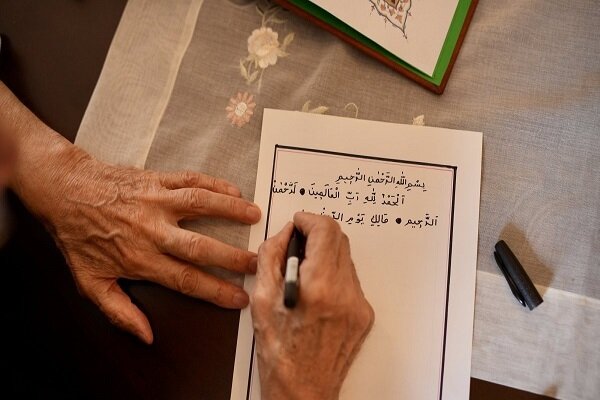 بِسْمِ اللهِ الرَّحْمٰنِ الرَّحِيمِ
اَلْحَمْدُ لِلّٰهِ رَبِّ الْعَالَمِينَ ● اَلرَّحْمٰنِ
اَلرَّحِيمِ ● مَالِكِ يَوْمِ